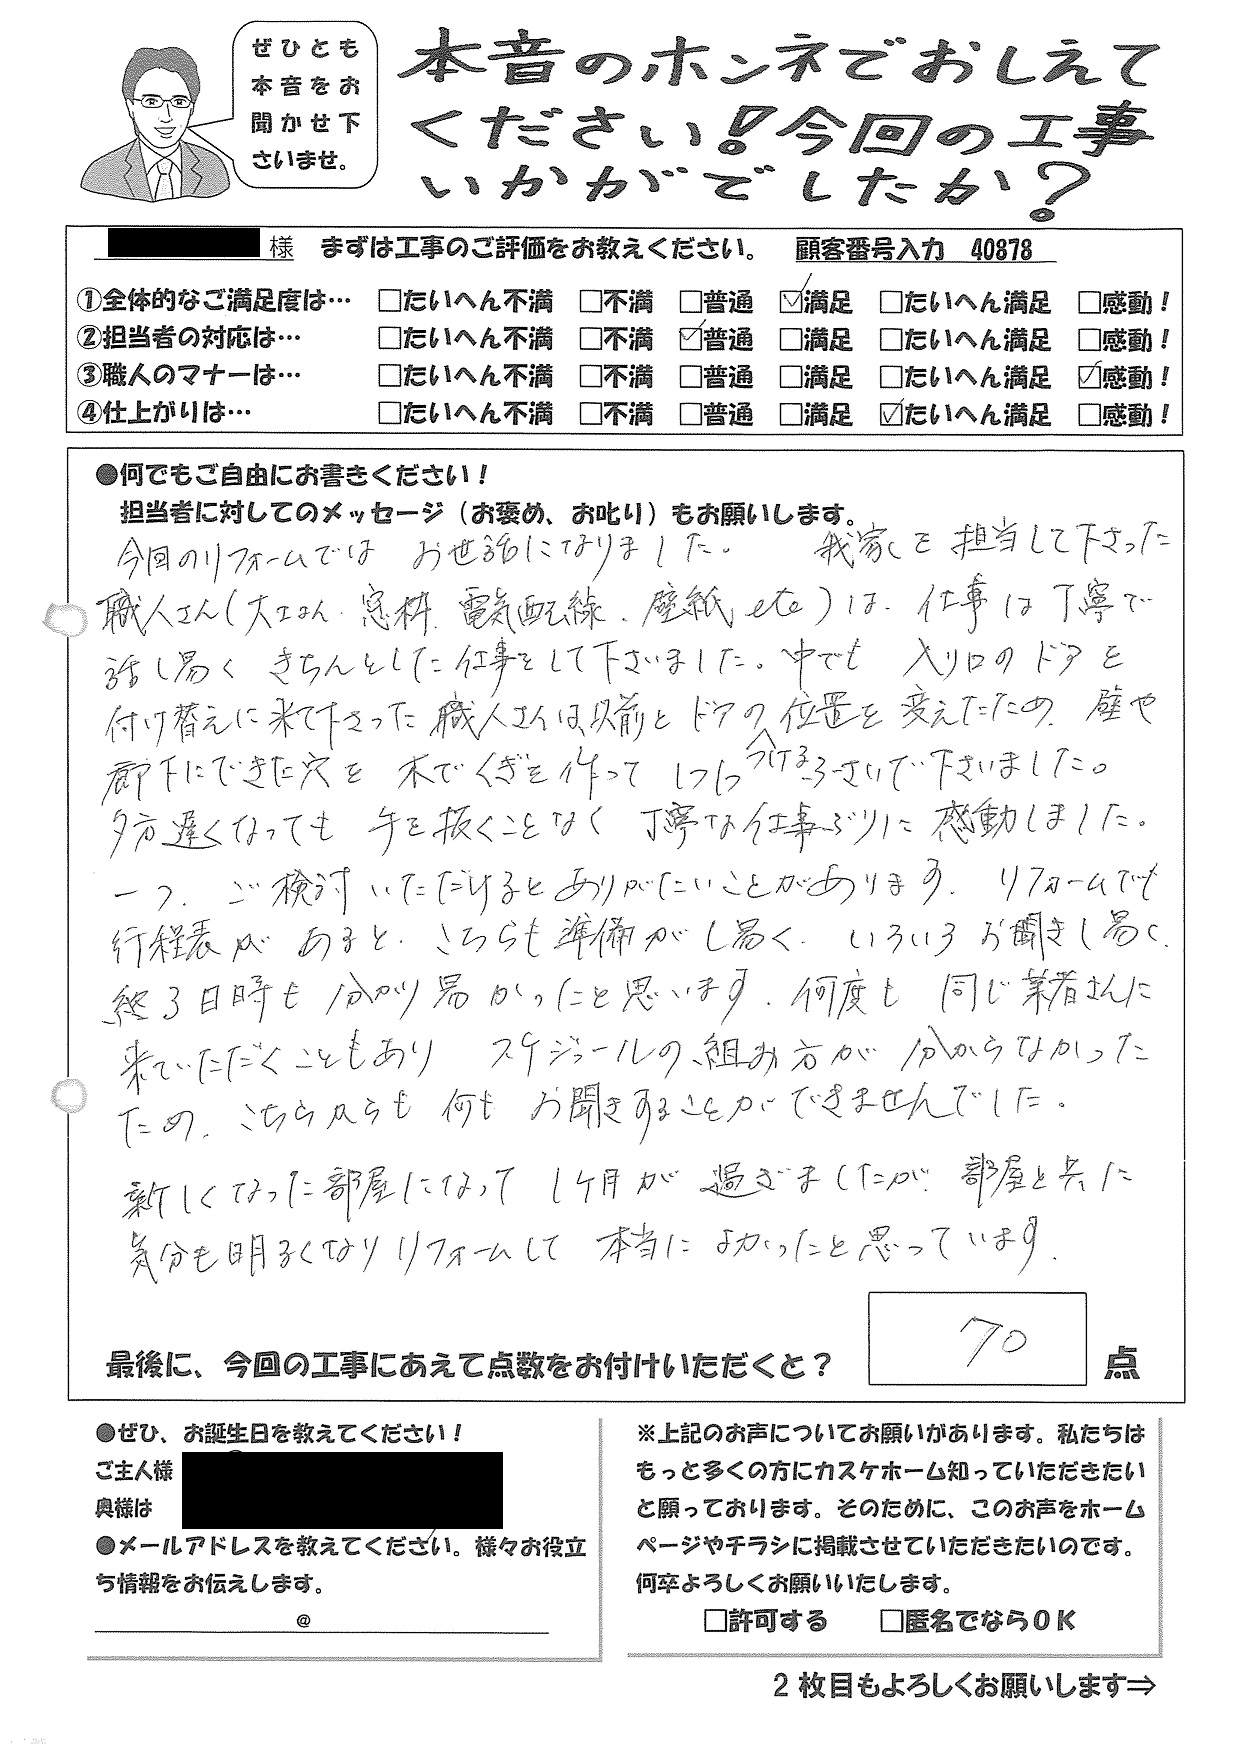 ぜひとも
本音をお
聞かせ下
さいませ。
本音のホンネでおしえて
ください!今回の工事
いかがでしたか?
様 まずは工事のご評価をお教えください。 顧客番号入力 40878
①全体的なご満足度は… □たいへん不満 □不満 □普通 ☑満足 □たいへん満足 □感動!
②担当者の対応は… □たいへん不満 □不満 ☑普通 □満足 □たいへん満足 □感動!
③職人のマナーは… □たいへん不満 □不満 □普通 □満足 □たいへん満足 ☑感動!
④仕上がりは… □たいへん不満 □不満 □普通 □満足 ☑たいへん満足 □感動!
●何でもご自由にお書きください!
担当者に対してのメッセージ(お褒め、お叱り)もお願いします。
今回のリフォームでは お世話になりました。 我家を担当して下さった
職人さん(大工さん、窓枠、電気配線、壁紙etc)は、仕事は丁寧で
話し易く きちんとした仕事をして下さいました。中でも 入り口のドアを
付け替えに来て下さった職人さんは、以前とドアの位置を変えたため、壁や
廊下にできた穴を 木でくぎを作って 1つ1つける ふさいで下さいました。
夕方遅くなっても 手を抜くことなく 丁寧な仕事ぶりに 感動しました。
一つ、ご検討いただけるとありがたいことがあります。リフォームでも
行程表が あると、こちらも準備がし易く、いろいろお聞きし易く、
終る日時も 分かり易かったと思います。何度も 同じ業者さんに
来ていただくこともあり スケジュールの組み方が 分からなかった
ため、こちらからも 何も お聞きすることができませんでした。
新しくなった部屋になって 1ケ月が 過ぎましたが、部屋と共に
気分も明るくなりリフォームして 本当に よかったと思っています。
最後に、今回の工事にあえて点数をお付けいただくと? 70 点
●ぜひ、お誕生日を教えてください!
ご主人様
奥様は
●メールアドレスを教えてください。様々お役立
ち情報をお伝えします。
@
※上記のお声についてお願いがあります。私たちは
もっと多くの方にカスケホーム知っていただきたい
と願っております。そのために、このお声をホーム
ページやチラシに掲載させていただきたいのです。
何卒よろしくお願いいたします。
□許可する □匿名でならOK
2枚目もよろしくお願いします⇒